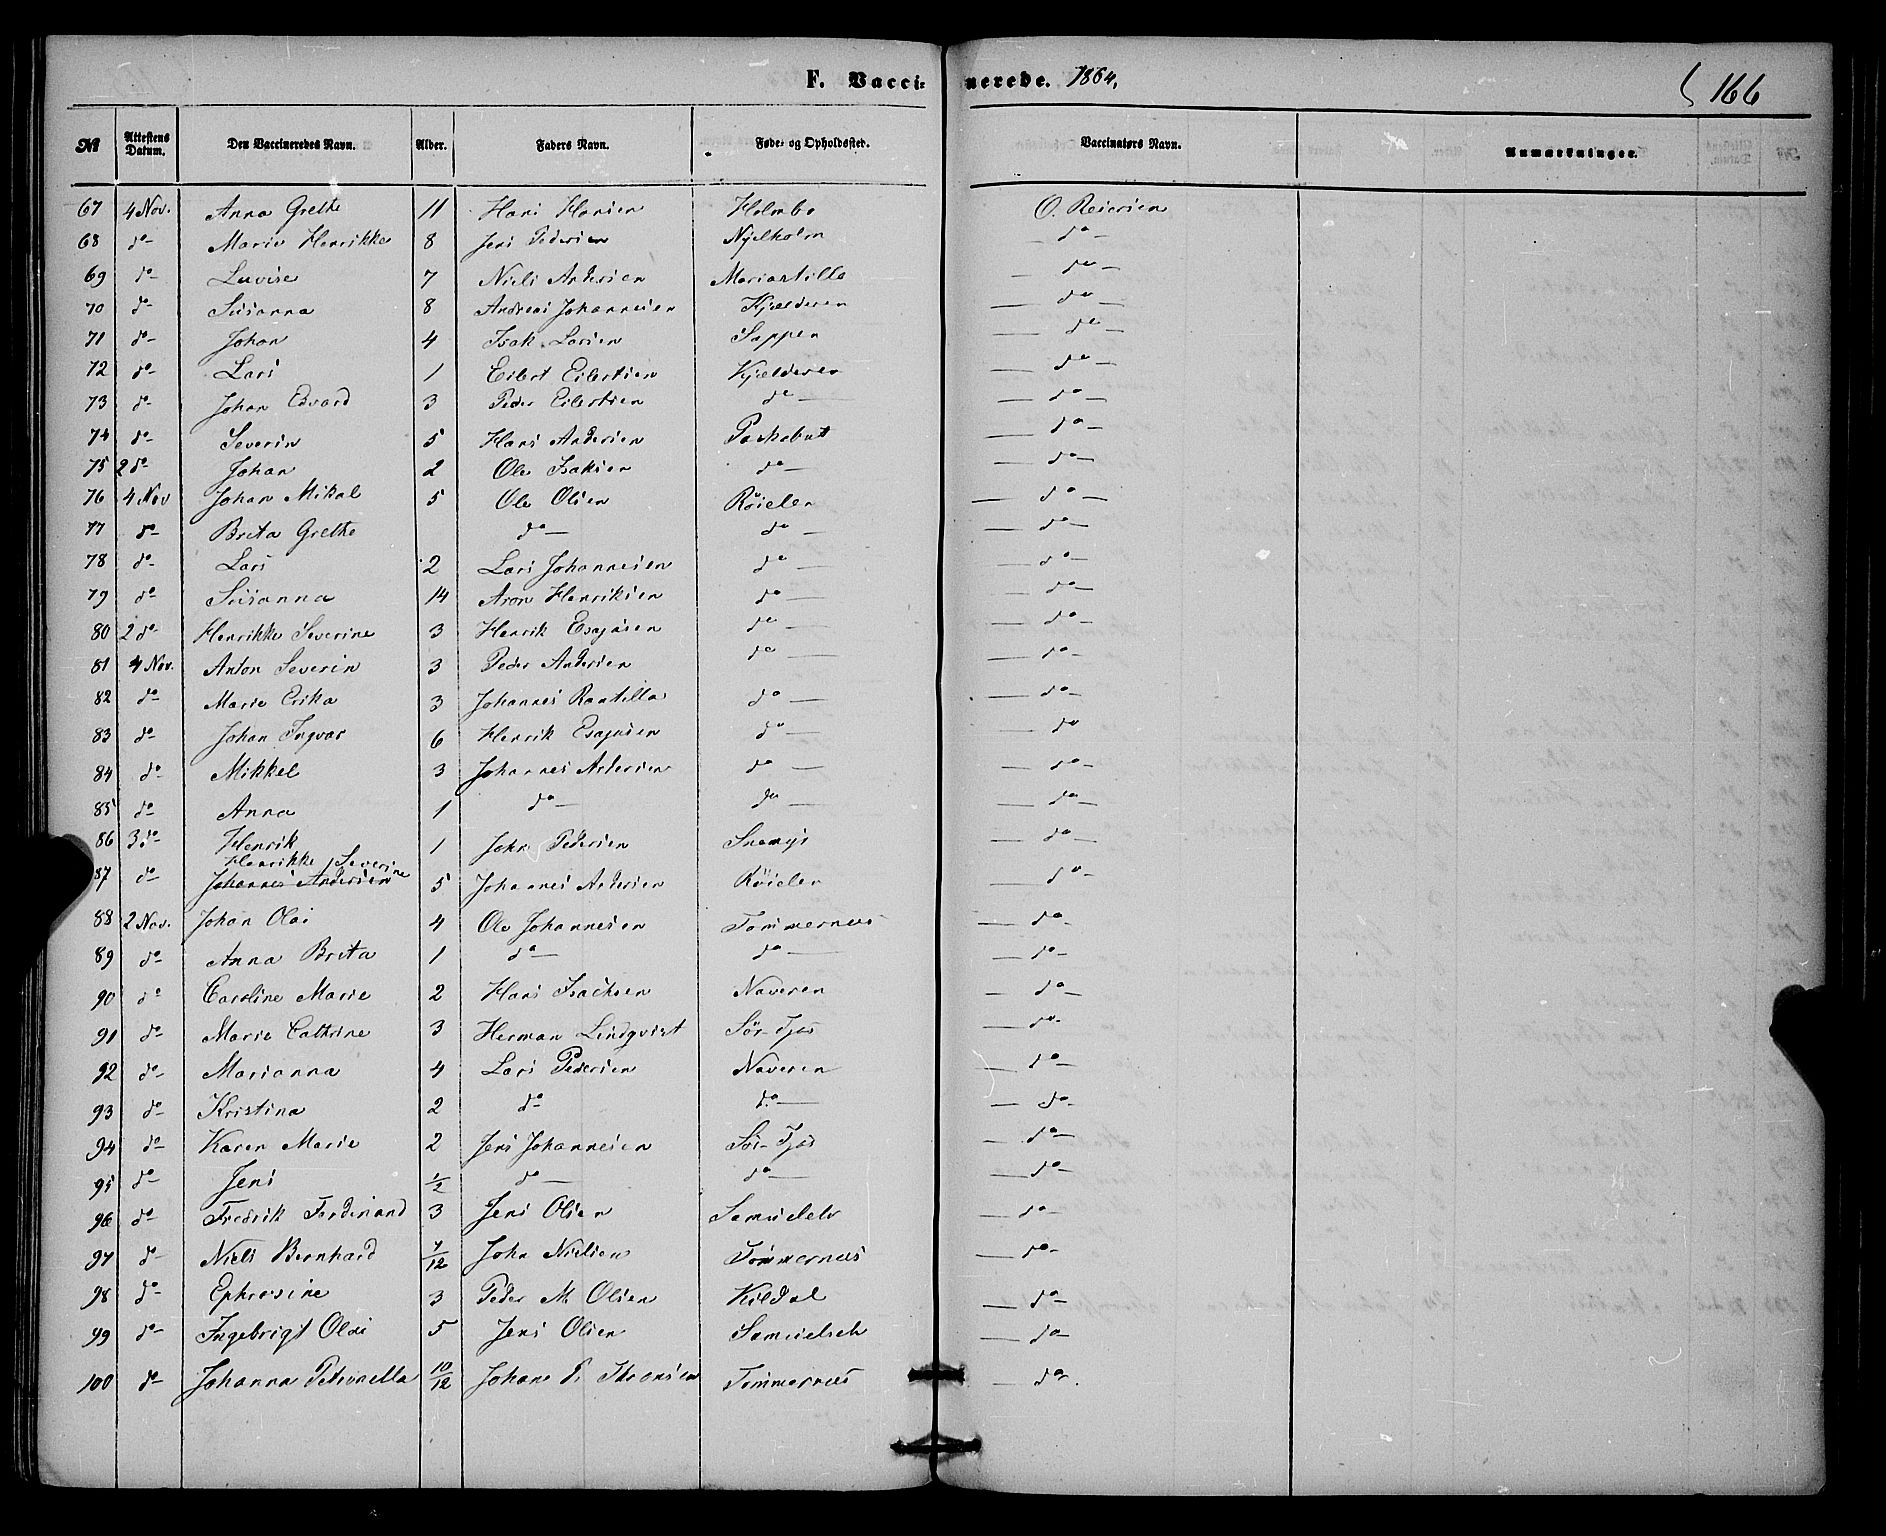 F. Vaccinerede. 1864. 166
No Attestens Datum. Den Vaccineredes Navn. Alder. Faders Navn. Føde- og Opholdssted. Vaccinatørs Navn. Anmærkninger.
67 4 Nov. Anna Grethe 11 Hans Hansen Holmbo O. Reiersen
68 do Marie Henrikke 8 Jens Pedersen Nyelholm do
69 do Lovise 7 Niels Andersen Mariastilla do
70 do Susanna 8 Andreas Johannesen Kjelderen do
71 do Johan 4 Isak Larsen Sappen do
72 do Lars 1 Eilert Eilertsen Kjelderen do
73 do Johan Edvard 3 Peder Eilertsen do do
74 do Severin 5 Hans Andersen Paskabut do
75 2 do Johan 2 Ole Isaksen do do
76 4 Nov Johan Mikal 5 Ole Olsen Röielen do
77 do Brita Grethe do do do
78 do Lars 2 Lars Johannesen do do
79 do Susanna 14 Aron Henriksen do do
80 2 do Henrikke Severine 3 Henrik Esajasen do do
81 4 Nov. Anton Severin 3 Peder Andersen do do
82 do Marie Erika 3 Johannes Rantilla do do
83 do Johan Ingvar 6 Henrik Esajasen do do
84 do Mikkel 3 Johannes Andersen do do
85 do Anna 1 do do do
86 3 do Henrik 1 John Pedersen Snemyr do
Henrikke Severine
87 do Johannes Andersen 5 Johannes Andersen Röielen do
88 2 Nov. Johan Olai 4 Ole Johannesen Tømmernes do
89 do Anna Brita 1 do do do
90 do Caroline Marie 2 Hans Isachsen Naveren do
91 do Marie Cathrine 3 Herman Lindqvist Sör-Tjos do
92 do Marianna 4 Lars Pedersen Naveren do
93 do Kristina 2 do do do
94 do Karen Marie 2 Jens Johannesen Sör-Tjos do
95 do Jens 1/2 do do do
96 do Fredrik Ferdinand 3 Jens Olsen Samuelelv do
97 do Niels Bernhard 7/12 John Nielsen Tømmernes do
98 do Ephrosine 3 Peder M. Olsen Kildal do
99 do Ingebrigt Olai 5 Jens Olsen Samuelselv do
100 do Johanna Petronella 10/12 Johan P. Thronsen Tømmernes do.